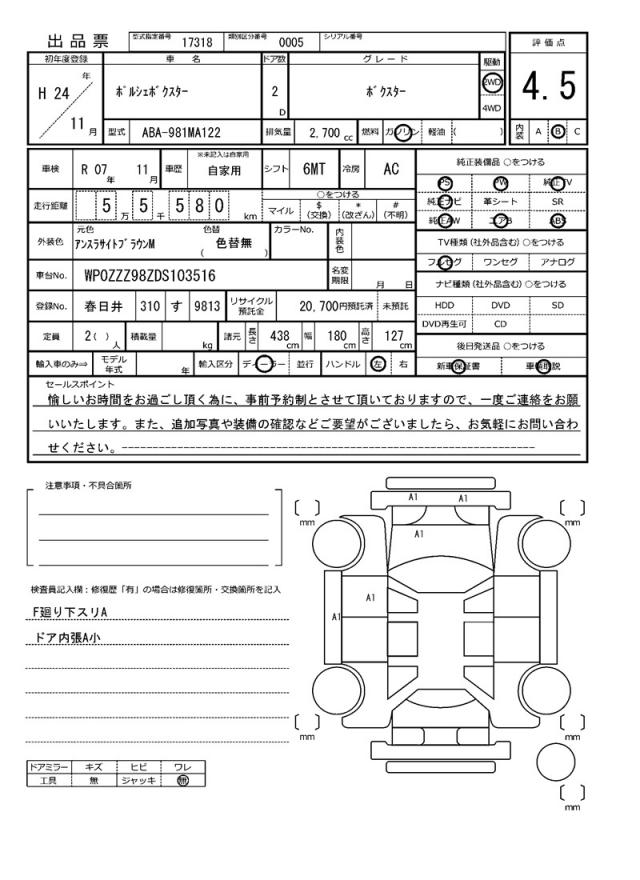 出品票 型式指定番号 17318 類別区分番号 0005 シリアル番号
評価点
4.5
内装 A B C
初年度登録 車名 ドア数 グレード 駆動
H 24 年 11 月
ポルシェボクスター 2 D ボクスター 2WD 4WD
型式 ABA-981MA122 排気量 2,700 cc 燃料 ガソリン 軽油 ( )
車検 R 07 年 11 月 車歴 ※未記入は自家用 自家用 シフト 6MT 冷房 AC
走行距離 5 万 5 千 5 8 0 km
○をつける
マイル $ (交換) * (改ざん) # (不明)
外装色 元色 アンスラサイトブラウンM 色替 ( 色替無 ) カラーNo. 内装色
車台No. WP0ZZZ98ZDS103516 名変期限 月 日
登録No. 春日井 310 す 9813 リサイクル預託金 20,700 円預託済 未預託
定員 2 ( ) 人 積載量 kg 諸元 長さ 438 cm 幅 180 cm 高さ 127 cm
輸入車のみ⇒ モデル年式 年 輸入区分 ディーラー 並行 ハンドル 左 右
純正装備品 ○をつける
PS PW 純正TV
純正ナビ 革シート SR
純正AW エアB ABS
TV種類 (社外品含む) ○をつける
フルセグ ワンセグ アナログ
ナビ種類 (社外品含む) ○をつける
HDD DVD SD
DVD再生可 CD
後日発送品 ○をつける
新車保証書 車輌取説
セールスポイント
愉しいお時間をお過ごし頂く為に、事前予約制とさせて頂いておりますので、一度ご連絡をお願
いいたします。また、追加写真や装備の確認などご要望がございましたら、お気軽にお問い合わ
せください。------------------------------------------------------------
注意事項・不具合箇所
検査員記入欄：修復歴「有」の場合は修復箇所・交換箇所を記入
F廻り下スリA
ドア内張A小
A1 A1
A1
A1
A1
mm
mm
mm
mm
mm
ドアミラー キズ ヒビ ワレ
工具 無 ジャッキ 無